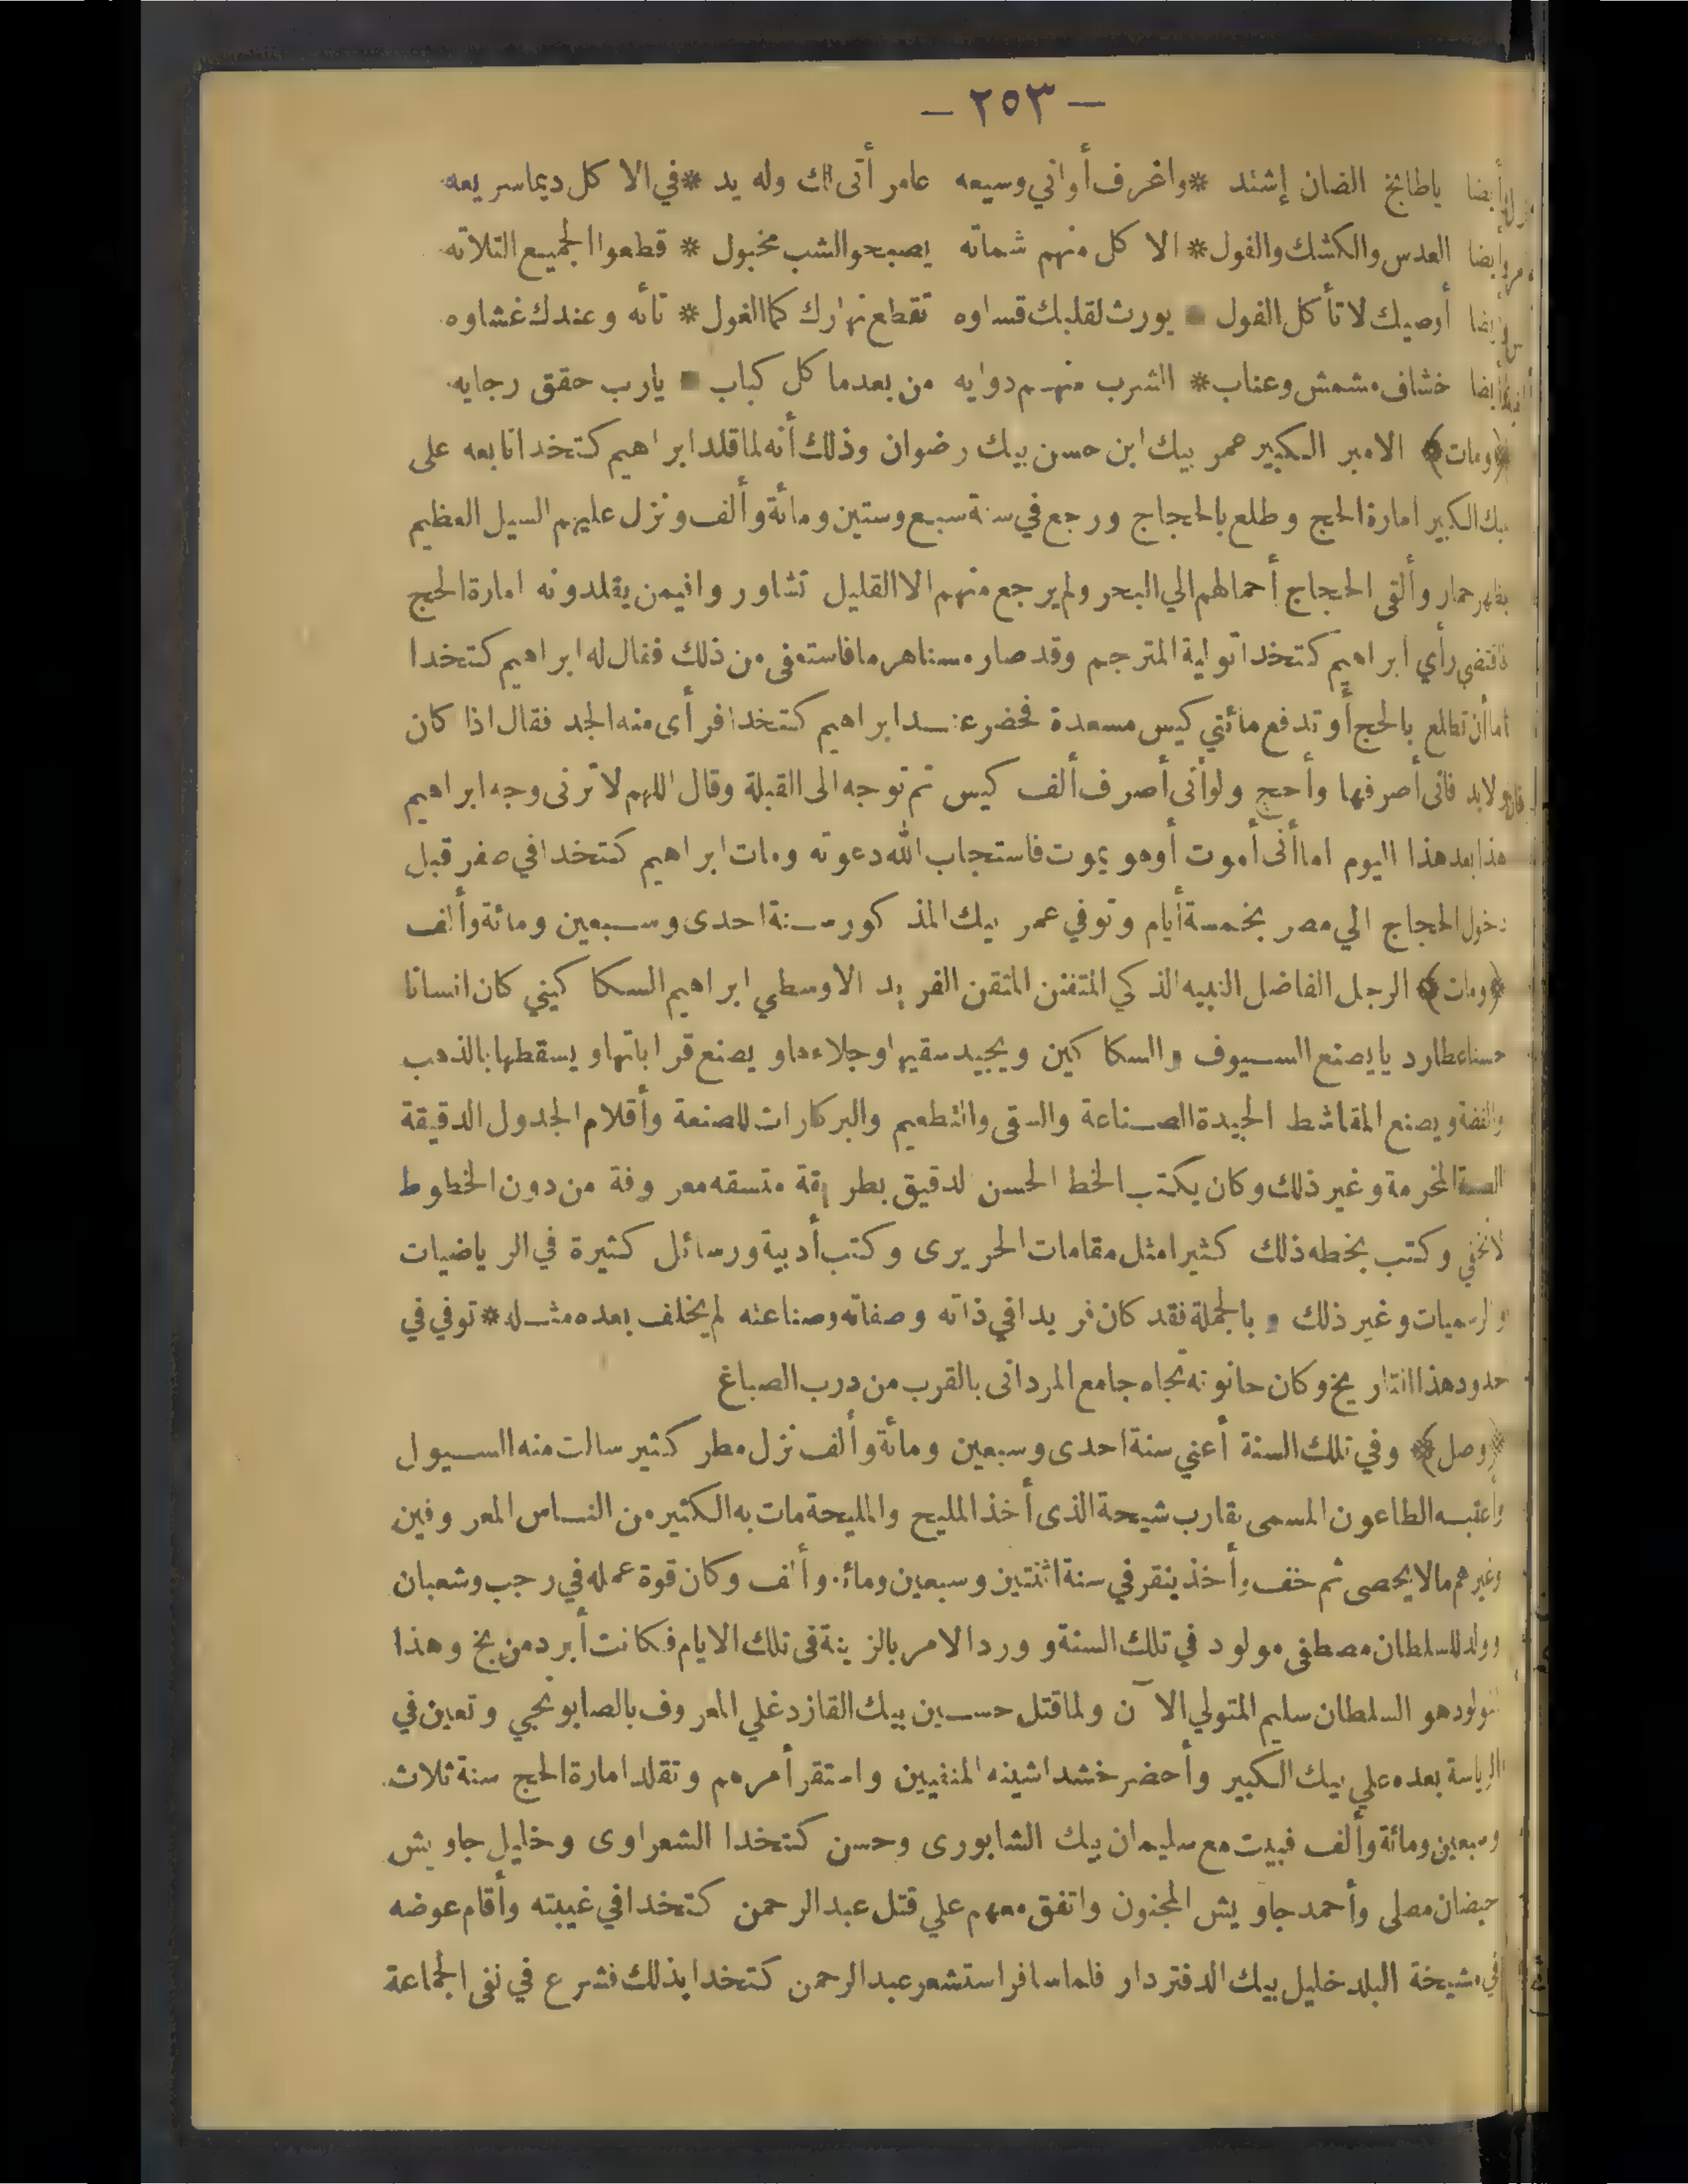 — ٢٥٣ —
أيضا ياطابخ الضان إشتد * واغرف أواني وسيعه عامر أتى لك وله يد * في الاكل ديما سريعه
أيضا العدس والكشك والفول * الاكل منهم شماته يصبحوا الشب مخبول * قطعوا الجميع التلاته
أيضا أوصيك لا تأكل الفول * يورث لقلبك قساوه تقطع نهارك كما الغول * تائه وعندك غشاوه
أيضا خشاف مشمش وعناب * الشرب منهم دوايه من بعد ما كل كباب * يارب حقق رجايه
﴿ومات﴾ الامير الكبير عمر بيك ابن حسن بيك رضوان وذلك أنه لما قلد ابراهيم كتخدا تابعه على
بيك الكبير امارة الحج وطلع بالحجاج ورجع في سنة سبع وستين ومائة وألف ونزل عليهم السيل العظيم
بظهر حمار وألقى الحجاج أحمالهم الي البحر ولم يرجع منهم الا القليل تشاوروا فيمن يقلدونه امارة الحج
فاقتضى رأي ابراهيم كتخدا تولية المترجم وقد صار مسنا هرما فاستعفى من ذلك فقال له ابراهيم كتخدا
اما أن تطلع بالحج أو تدفع مائتي كيس مسعدة فحضر عند ابراهيم كتخدا فرأى منه الجد فقال اذا كان
ولا بد فانى أصرفها وأحج ولو أنى أصرف ألف كيس ثم توجه الى القبلة وقال اللهم لا ترنى وجه ابراهيم
هذا بعد هذا اليوم اما أنى أموت أو هو يموت فاستجاب الله دعوته ومات ابراهيم كتخدا في صفر قبل
دخول الحجاج الي مصر بخمسة أيام وتوفي عمر بيك المذكور سنة احدى وسبعين ومائة وألف
﴿ومات﴾ الرجل الفاضل النبيه الذكي المتفنن المتقن الفريد الاوسطي ابراهيم السكاكيني كان انسانا
حسنا عطارديا يصنع السيوف والسكاكين ويجيد سقيها وجلاءها ويصنع قراباتها ويسقطها بالذهب
والفضة ويصنع المقاشط الجيدة الصناعة والسقى والتطعيم والبركارات للصنعة وأقلام الجدول الدقيقة
الصنعة المخرمة وغير ذلك وكان يكتب الخط الحسن الدقيق بطريقة متسقه معروفة من دون الخطوط
لا تخفي وكتب بخطه ذلك كثيرا مثل مقامات الحريرى وكتب أدبية ورسائل كثيرة في الرياضيات
والرسميات وغير ذلك وبالجملة فقد كان فريدا في ذاته وصفاته وصناعته لم يخلف بعده مثله * توفي في
حدود هذا التاريخ وكان حانوته تجاه جامع المردانى بالقرب من درب الصباغ
﴿وصل﴾ وفي تلك السنة أعني سنة احدى وسبعين ومائة وألف نزل مطر كثير سالت منه السيول
وأعقبه الطاعون المسمى بقارب شيحة الذى أخذ المليح والمليحة مات به الكثير من الناس المعروفين
وغيرهم مالا يحصى ثم خف وأخذ ينقر في سنة اثنتين وسبعين ومائة وألف وكان قوة عمله في رجب وشعبان
وولد للسلطان مصطفى مولود في تلك السنة وورد الامر بالزينة فى تلك الايام فكانت أبرد من يخ وهذا
المولود هو السلطان سليم المتولي الآن ولما قتل حسين بيك القازدغلي المعروف بالصابونجي وتعين في
الرياسة بعده علي بيك الكبير وأحضر خشداشينه المنفيين واستقر أمرهم وتقلد امارة الحج سنة ثلاث
وسبعين ومائة وألف فبيت مع سليمان بيك الشابورى وحسن كتخدا الشعراوى وخليل جاويش
حيضان مصلى وأحمد جاويش المجنون واتفق معهم علي قتل عبد الرحمن كتخدا في غيبته وأقام عوضه
في مشيخة البلد خليل بيك الدفتردار فلما سافر استشعر عبد الرحمن كتخدا بذلك فشرع في نفى الجماعة